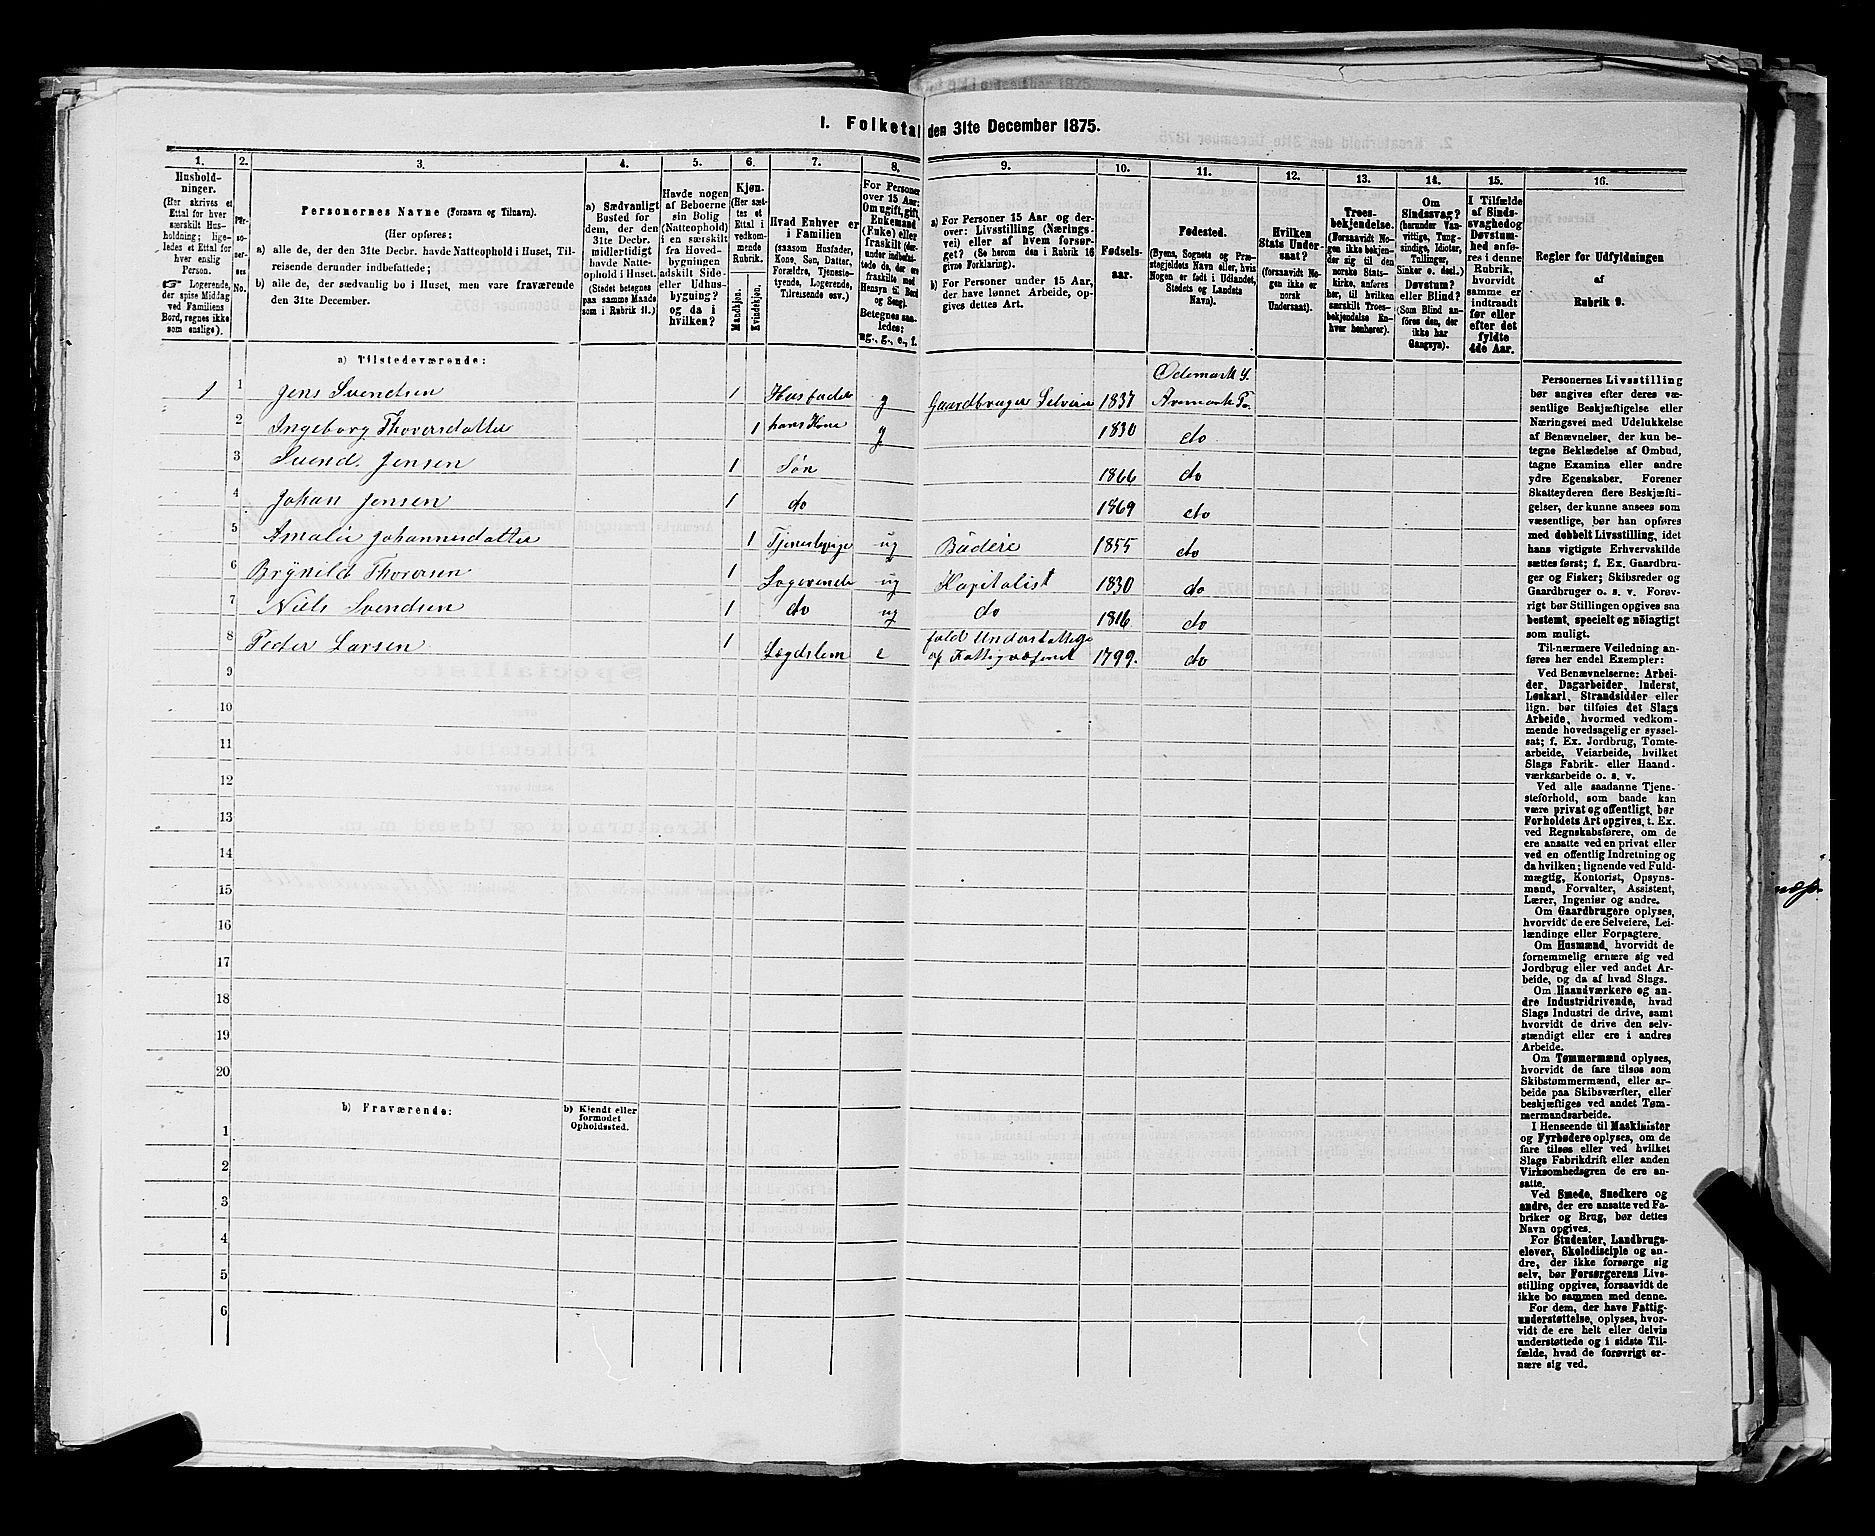 I. Folketal den 31te December 1875.
1. 2. 3. 4. 5. 6. 7. 8. 9. 10. 11. 12. 13. 14. 15. 16.
Hushold-
ninger.
(Her skrives et
Ettal for hver
særskilt Hus-
holdning; lige-
ledes et Ettal for
hver enslig
Person.
☞ Logerende,
der spise Middag
ved Familiens
Bord, regnes ikke
som enslige).
Per-
so-
ner-
nes
No.
Personernes Navne (Fornavn og Tilnavn).
(Her opføres:
a) alle de, der den 31te Decbr. havde Natteophold i Huset, Til-
reisende derunder indbefattede;
b) alle de, der sædvanlig bo i Huset, men vare fraværende
den 31te December.
a) Sædvanligt
Bosted for
dem, der den
31te Decbr.
midlertidigt
havde Natte-
ophold i Huset.
(Stedet betegnes
paa samme Maade
som i Rubrik 11.)
Havde nogen
af Beboerne
sin Bolig
(Natteophold)
i en særskilt
fra Hoved-
bygningen
adskilt Side-
eller Udhus-
bygning?
og da i
hvilken?
Kjøn.
(Her sæt-
tes et
Ettal i
vedkom-
mende
Rubrik.
Mandkjøn.
Kvindekjøn.
Hvad Enhver er
i Familien
(saasom Husfader,
Kone, Søn, Datter,
Forældre, Tjeneste-
tyende, Logerende,
Tilreisende osv.)
For Personer
over 15 Aar:
Om ugift, gift,
Enkemand
(Enke) eller
fraskilt (der-
under indbefat-
tede de, der ere
fraskilte med
Hensyn til Bord
og Seng).
Betegnes saa-
ledes:
ug., g., e., f.
a) For Personer 15 Aar og der-
over: Livsstilling (Nærings-
vei) eller af hvem forsør-
get? (Se herom den i Rubrik 16
givne Forklaring).
b) For Personer under 15 Aar,
der have lønnet Arbeide, op-
gives dettes Art.
Fødsels-
aar.
Fødested.
(Byens, Sognets og Præ-
stegjeldets Navn eller, hvis
Nogen er født i Udlandet,
Stedets og Landets
Navn).
Hvilken
Stats Under-
saat?
(forsaavidt No-
gen ikke er
norsk
Undersaat).
Troes-
bekjendelse.
(Forsaavidt No-
gen ikke bekjen-
der sig til den
norske Stats-
kirke, anføres
her, til hvilken
særskilt Troes-
bekjendelse En-
hver henhører).
Om
Sindssvag?
(herunder Van-
vittige, Tung-
sindige, Idioter,
Tullinger,
Sinker o. desl.)
Døvstum?
eller Blind?
(Som Blind an-
føres den, der
ikke har
Gangsyn).
I Tilfælde
af Sinds-
svaghed og
Døvstum-
hed anfø-
res i denne
Rubrik,
hvorvidt
samme er
indtraadt
før eller
efter det
fyldte
4de Aar.
Regler for Udfyldningen
af
Rubrik 9.
a) Tilstedeværende:
Ødemark S.
1 1 Jens Svendsen 1 Husfader g Gaardbruger Selveier 1837 Aremark Pr.
2 Ingeborg Thoresdatter 1 hans Kone g 1830 do
3 Svend Jensen 1 Søn 1866 do
4 Johan Jensen 1 do 1869 do
5 Amalie Johannesdatter 1 ug 1855 do
6 Brynild Thoresen 1 Logerende ug Kapitalist 1830 do
7 Niels Svendsen 1 do ug do 1816 do
8 Peder Larsen 1 Lægdslem e fuld Understøttelse af Fattigvæsenet 1799. do
9
10
11
12
13
14
15
16
17
18
19
20
b) Fraværende: b) Kjendt eller
formodet
Opholdssted.
1
2
3
4
5
6
Personernes Livsstilling
bør angives efter deres væ-
sentlige Beskjæftigelse eller
Næringsvei med Udelukkelse
af Benævnelser, der kun be-
tegne Beklædelse af Ombud,
tagne Examina eller andre
ydre Egenskaber. Forener
Skatteyderen flere Beskjæfti-
gelser, der kunne ansees som
væsentlige, bør han opføres
med dobbelt Livsstilling, idet
hans vigtigste Erhvervskilde
sættes først; f. Ex. Gaardbru-
ger og Fisker; Skibsreder og
Gaardbruger o. s. v. Forøv-
rigt bør Stillingen opgives saa
bestemt, specielt og nøiagtigt
som muligt.
Til nærmere Veiledning an-
føres her endel Exempler:
Ved Benævnelserne: Arbei-
der, Dagarbeider, Inderst,
Løskarl, Strandsidder eller
lign. bør tilføies det Slags
Arbeide, hvormed vedkom-
mende hovedsagelig er syssel-
sat; f. Ex. Jordbrug, Tomte-
arbeide, Veiarbeide, hvilket
Slags Fabrik- eller Haand-
værksarbeide o. s. v.
Ved alle saadanne Tjene-
steforhold, som baade kan
være privat og offentligt, bør
Forholdets Art opgives, t. Ex.
ved Regnskabsførere, om de
ere ansatte ved en privat eller
ved en offentlig Indretning og
da hvilken; lignende ved Fuld-
mægtig, Kontorist, Opsyns-
mand, Forvalter, Assistent,
Lærer, Ingeniør og andre.
Om Gaardbrugere oplyses,
hvorvidt de ere Selveiere, Lei-
lændinge eller Forpagtere.
Om Husmænd, hvorvidt de
fornemmelig ernære sig ved
Jordbrug eller ved andet Ar-
beide, og da af hvad Slags.
Om Haandværkere og an-
dre Industridrivende, hvad
Slags Industri de drive, samt
hvorvidt de drive den selv-
stændigt eller ere i andres
Arbeide.
Om Tømmermænd oplyses,
hvorvidt de fare tilsøs som
Skibstømmermænd, eller ar-
beide paa Skibsværfter, eller
beskjæftiges ved andet Tøm-
mermandsarbeide.
I Henseende til Maskinister
og Fyrbødere oplyses, om de
fare tilsøs eller ved hvilket
Slags Fabrikdrift eller anden
Virksomhedsgren de ere an-
satte.
Ved Smede, Snedkere og
andre, der ere ansatte ved Fa-
briker og Brug, bør dettes
Navn opgives.
For Studenter, Landbrugs-
elever, Skoledisciple og an-
dre, der ikke forsørge sig
selv, bør Forsørgerens Livs-
stilling opgives, forsaavidt de
ikke bo sammen med denne.
For dem, der have Fattig-
understøttelse, oplyses, hvor-
vidt de ere helt eller delvis
understøttede og i sidste Til-
fælde, hvad de forøvrigt er-
nære sig ved.